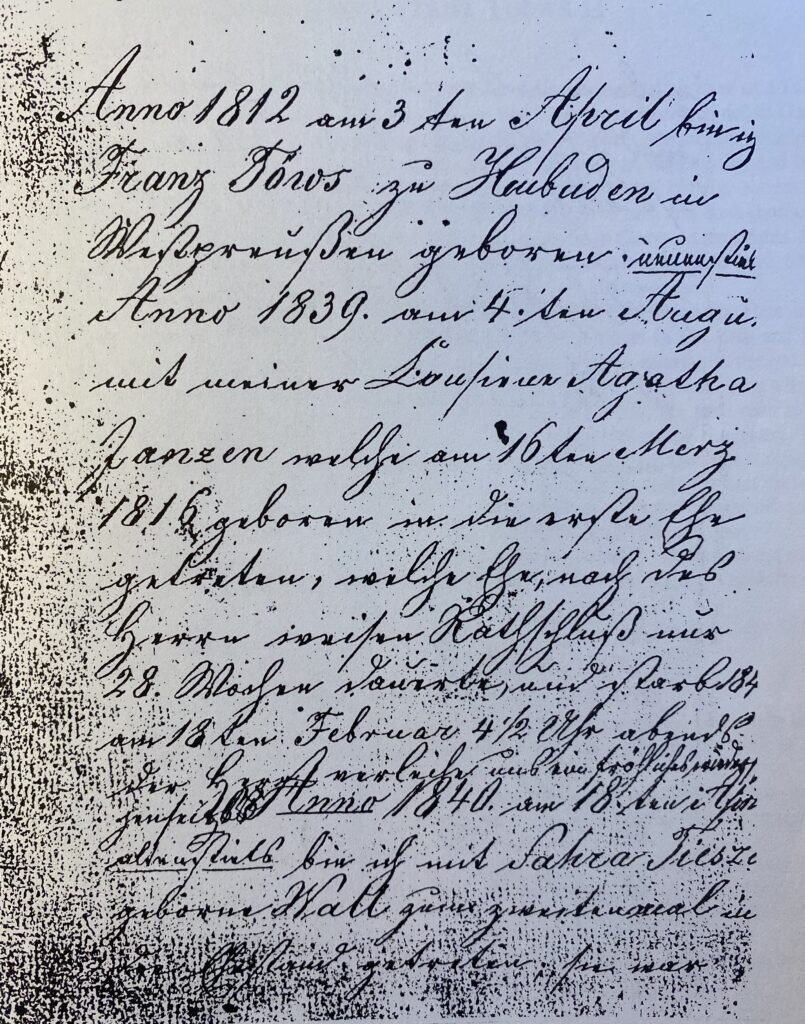 Anno 1812 am 3 ten April bin ig
Franz Töws zu Heubuden in
Westpreußen geboren. neuenstiel
Anno 1839. am 4. ten Augu.
mit meiner Cousiene Agatha
Janzen welche am 16ten Merz
1816 geboren in die erste Ehe
getreten, welche Ehe, nach des
Herrn weisen Rathschluß nur
28. Wochen dauerte, und starb 184
am 18ten Februar 4 1/2 Uhr abends.
der Herr verleihe uns ein fröhliches wieder
jenseits Anno 1840. am 18. ten
altenstiels bin ich mit Sahra Tiesze
geborne Wall zum zweitenmal in
den Ehestand getreten, sie war